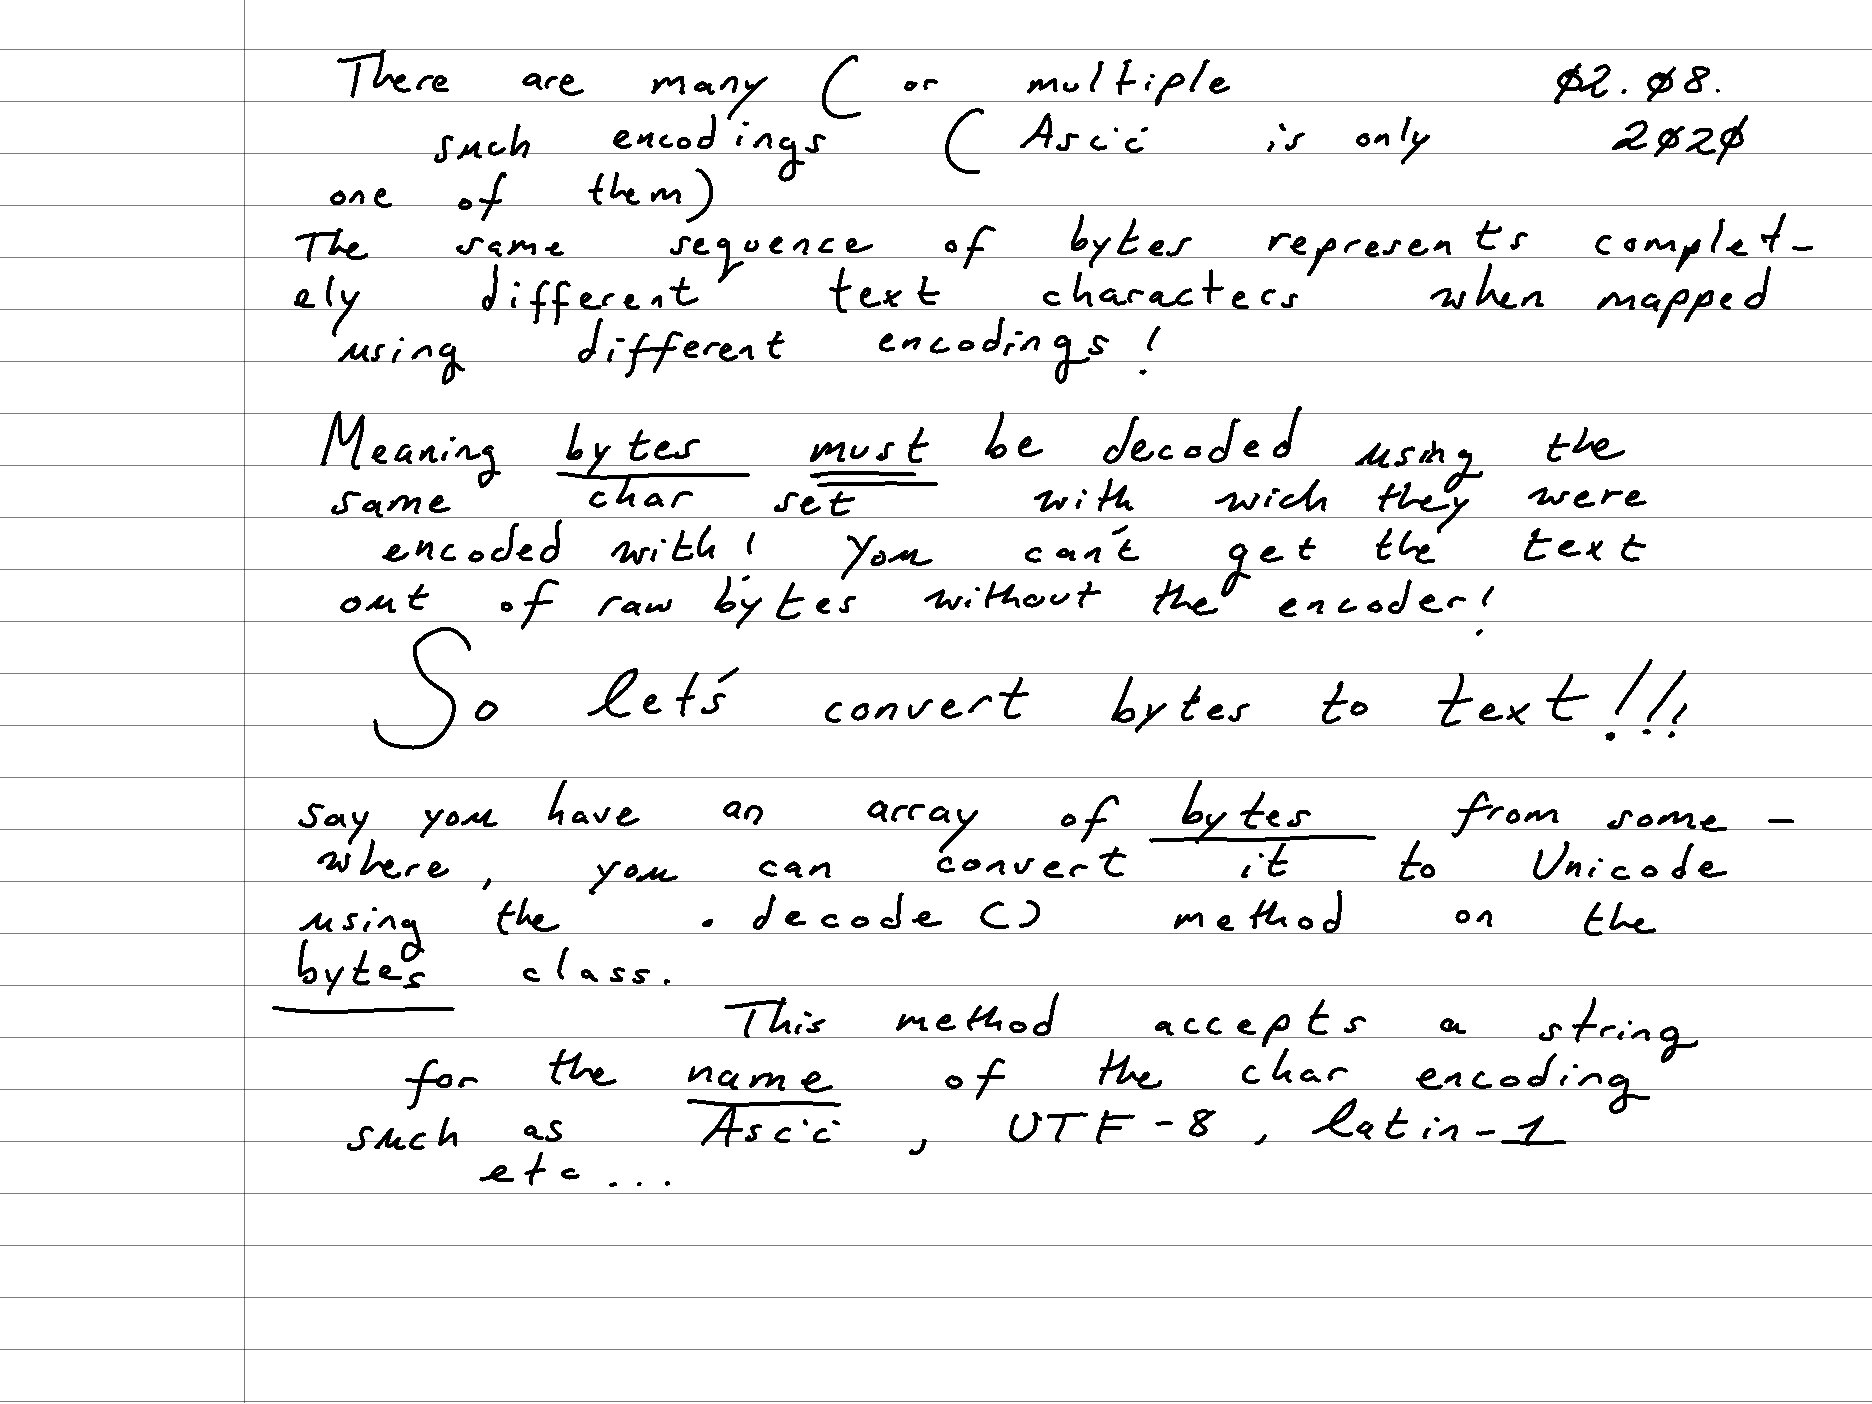 There are many ( or multiple 02.08.
such encodings ( Ascii is only 2020
one of them)
The same sequence of bytes represents complet-
ely different text characters when mapped
using different encodings!
Meaning bytes must be decoded using the
same char set with wich they were
encoded with! You can't get the text
out of raw bytes without the encoder!
So let's convert bytes to text!!!
say you have an array of bytes from some-
where, you can convert it to Unicode
using the .decode() method on the
bytes class.
This method accepts a string
for the name of the char encoding
such as Ascii, UTF-8, latin-1
etc...